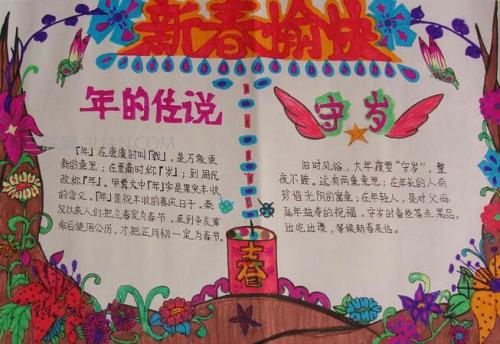 新春愉快
年的传说
「年」在唐虞时叫「载」，是万象更
新的意思；在夏商时称「岁」；到周代
改称「年」。甲骨文中「年」字是果实丰收
的含义。「年」是祝丰收的喜庆日子。秦
汉以来人们把立春定为春节，直到辛亥革
命后使用公历，才把正月初一定为春节。
春
守岁
旧时风俗，大年夜要“守岁”，整
夜不睡。这有两重意思：在年长的人有
珍惜光阴的寓意；在年轻人，是对父母
延年益寿的祝福。守岁时备些茶点果品，
边吃边谈，等候新春来临。